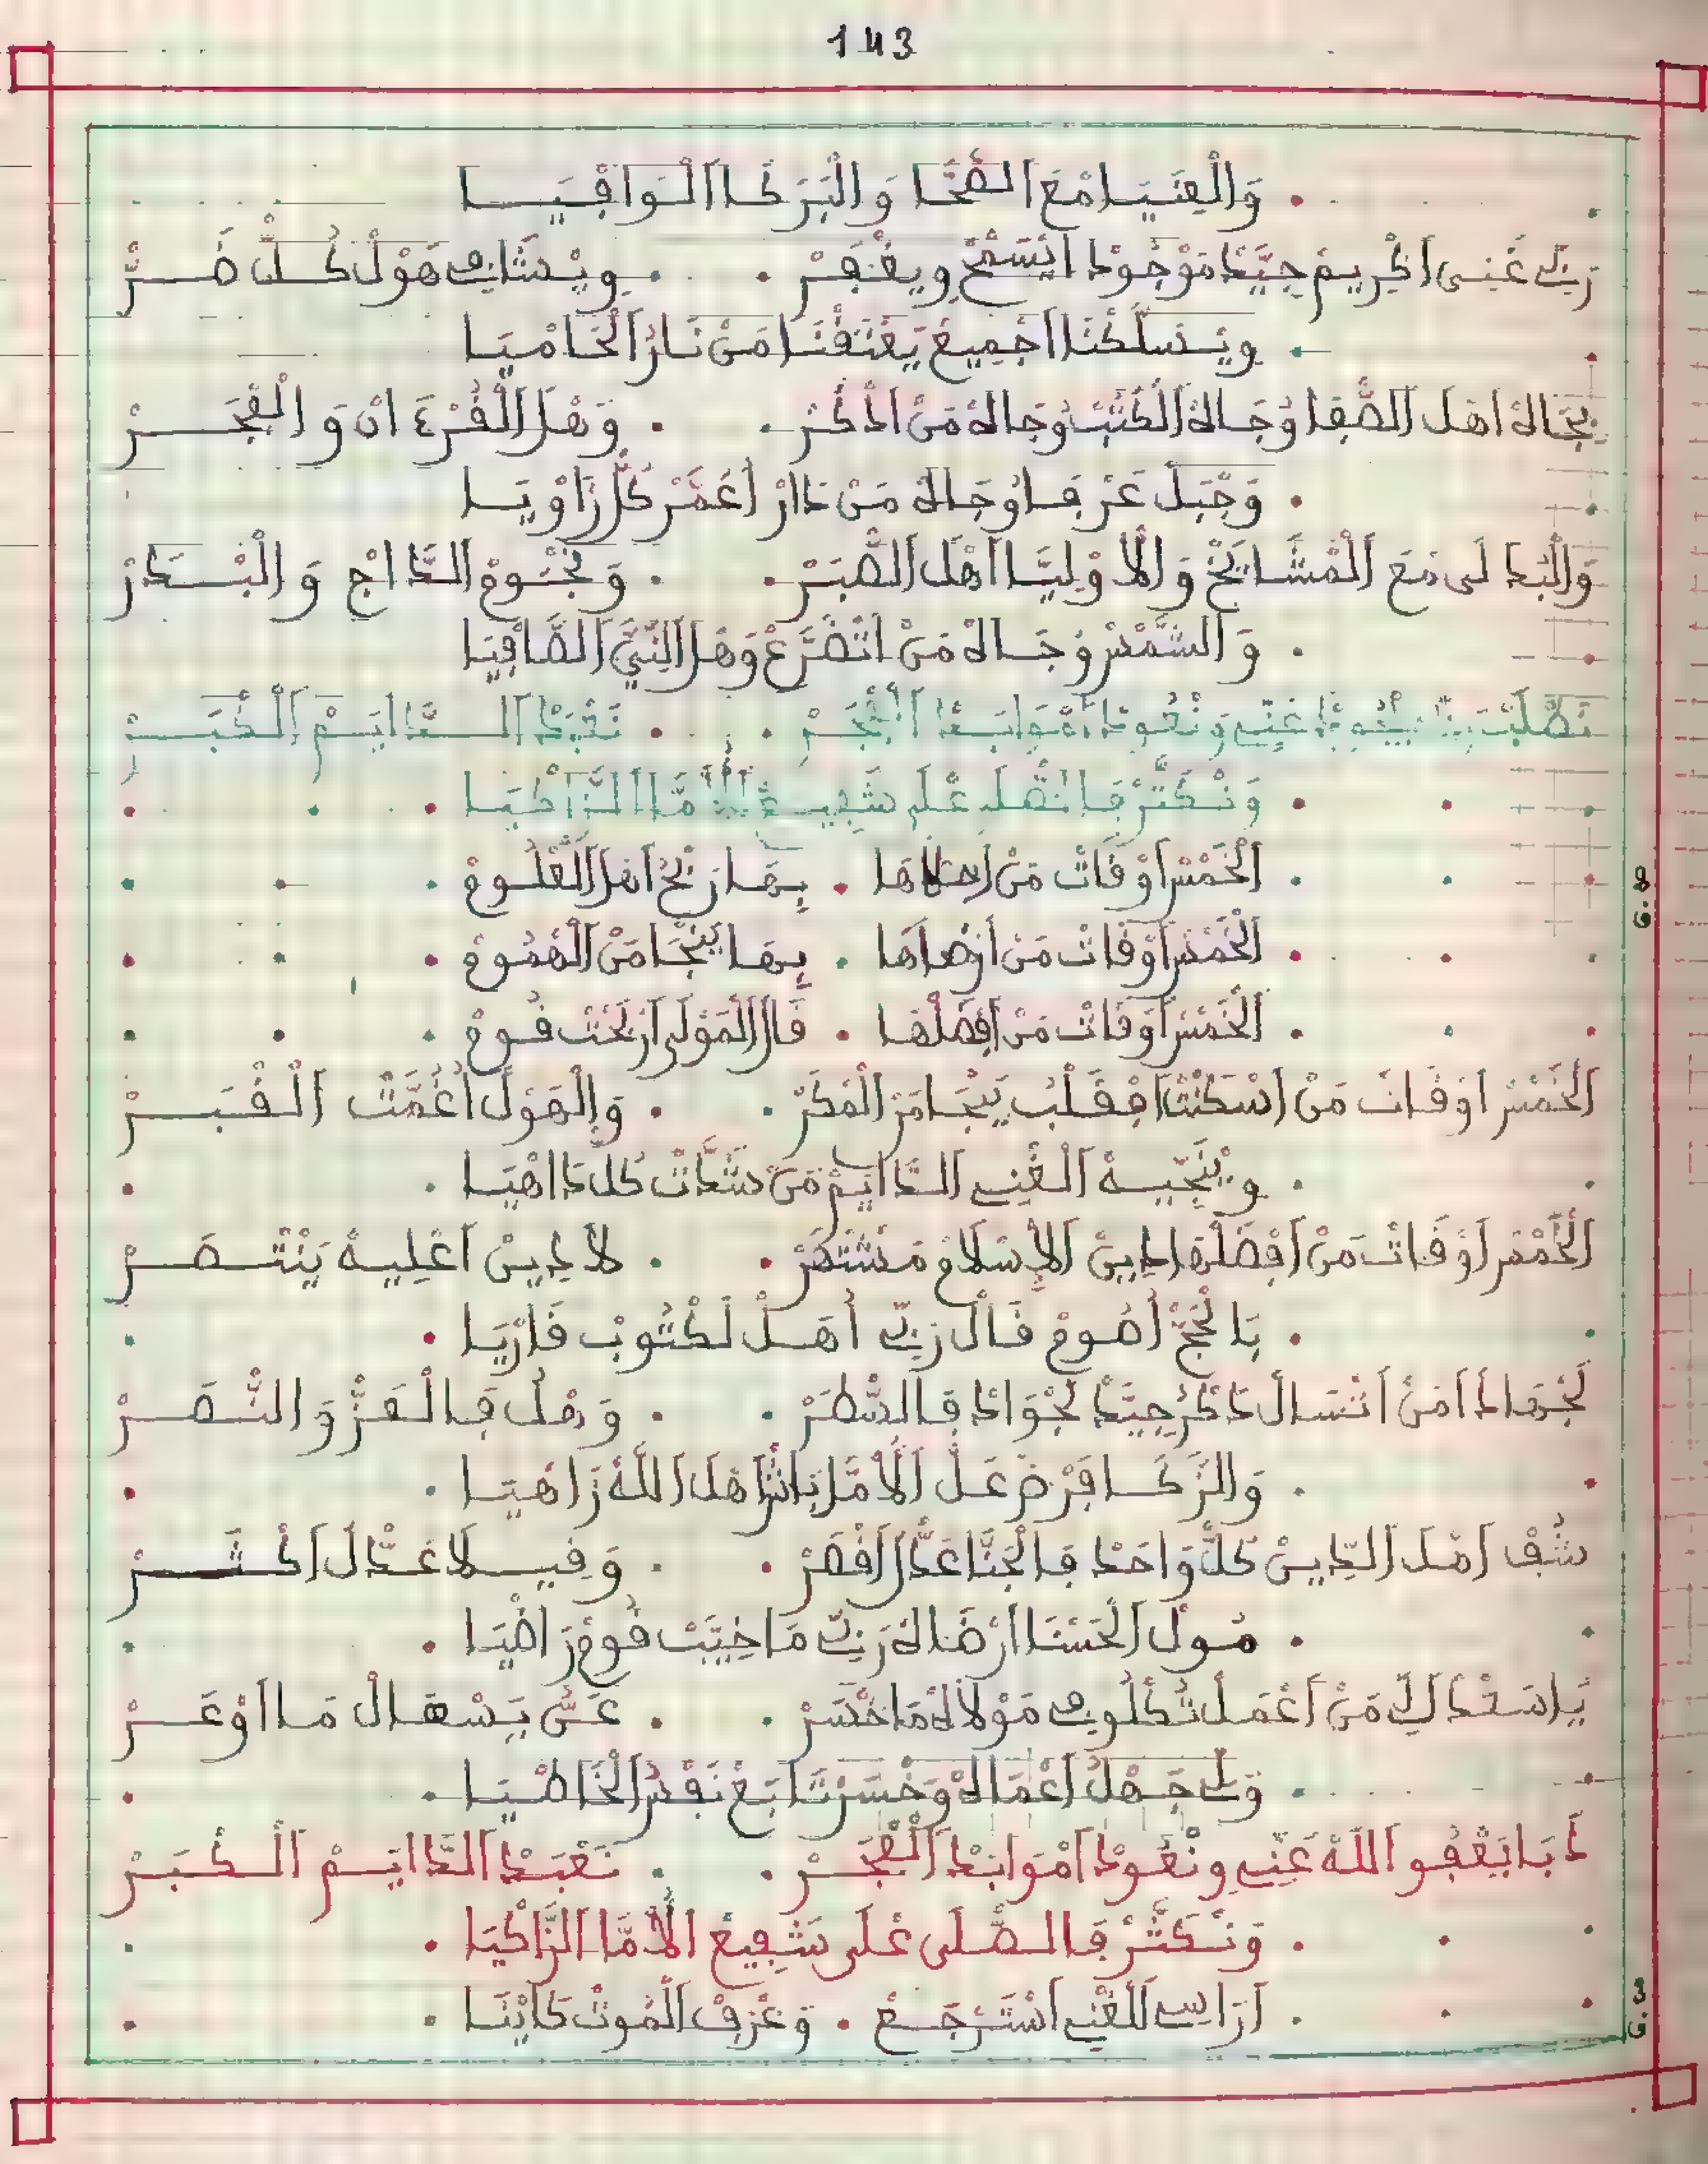 143
وَالْعِنَيَا مْعَ الصَّحَّا وَالْبَرَكَا الْوَافْيَا
رَبِّي غَنِي اكْرِيمْ جِيَّدْ مَوْجُودْ ايَسْمَحْ وِيغْفَرْ . وِيْشَافِي هَوْلْ كُلّْ ضَرّْ
وِيْسَلَّكْنَا اجْمِيعْ يَعْتَقْنَا مَنْ نَارْ الْحَامْيَا
بِجَاهْ اهْلْ الصّْفَا وُجَاهْ الْكُتُبْ وُجَاهْ مَنْ اذْكَرْ . وَهْلْ الْقُرْءَانْ وَالْفَجَرْ
وَجْبَلْ عَرْفَا وُجَاهْ مَنْ دَارْ اعْمَرْ كُلّْ زَاوْيَا
وَالْبُدَالَى مَعَ الْمْشَايَخْ وَالْاوْلِيَّا اهْلْ الصّْبَرْ . وَنْجُومْ الدَّاجْ وَالْبْدَرْ
وَالشَّمْسْ وُجَاهْ مَنْ اتْضَرَّعْ وَهْلْ النِّيَّ الصَّافْيَا
عَنِّي وَنْعُودْ امْوَابَدْ الْفْجَرْ . نَعْبَدْ الدَّايَمْ الْكْبَرْ
وَنْكَتَّرْ فَالصّْلَى عْلَى شَفِيعْ الْأُمَّا الزَّاكْيَا
الْخَمْسْ اوْقَاتْ مَنْ اعْطَاهَا . بِهَا رْبَحْ اهْلْ الْعْلُومْ
الْخَمْسْ اوْقَاتْ مَنْ ارْضَاهَا . بِهَا يَنْجَا مَنْ الْهْمُومْ
الْخَمْسْ اوْقَاتْ مَنْ افْضَلْهَا . قَالْ الْمَوْلَى ارْبَحْتْ قُومْ
الْخَمْسْ اوْقَاتْ مَنْ اسْكَنْتْ افْقَلْبُ يَنْجَا مَنْ الْمْكَرْ . وَالْهَوْلْ اغُمَّتْ الْقْبَرْ
وِيْنَجِّيهْ الْغْنِي الدَّايَمْ مَنْ شَدَّاتْ كُلّْ دَاهْيَا
الْخَمْسْ اوْقَاتْ مَنْ افْضَلْهَا دِينْ الْإِسْلَامْ مَشْتْهَرْ . لَا دِينْ اعْلِيهْ يَنْتْصَرْ
بَالْحَجّْ اصُومْ قَالْ رَبِّي اهَلْ لَكْتُوبْ قَارْيَا
لَجْهَادْ امَنْ اتْسَالْ ذَكْرْ جِيَّدْ لَجْوَادْ فَالسّْطَرْ . وَهْلُ فَالْعَزّْ وَالنّْصَرْ
وَالزَّكَا فَرْضْ عَلْ الْأُمَّا بَاشْ اهَلْ اللَّهْ زَاهْيَا
شُفْ اهْلْ الدِّينْ كُلّْ وَاحَدْ فَالْجَنَّا عَدّْلْ اقْصَرْ . وَفِيلَا عَدّْلْ اكْثَرْ
مُولْ الْحَسْنَا ارْضَاهْ رَبِّي مَا خِيَّبْ قُومْ رَاضْيَا
يَا سَعْدَاكْ مَنْ اعْمَلْ تُكْلُو فِي مَوْلَاهْ مَا خْسَرْ . عَنُّ يَسْهَالْ مَا اوْعَرْ
وَلِّي جَهْلْ اعْمَالُهْ وَخْسَرْ تَابَعْ نَفْسُ الْخَاطْيَا
ذَبَا يَعْفُو اللَّهْ عَنِّي وِنْعُودْ امْوَابَدْ الْفْجَرْ . نَعْبَدْ الدَّايَمْ الْكْبَرْ
وَنْكَثَّرْ فَالصّْلَى عْلَى شَفِيعْ الْأُمَّا الزَّاكْيَا
ارَاسِي لَلْغْنِي اسْتَرْجَعْ . وَعْرَفْ الْمُوتْ كَايْنَا